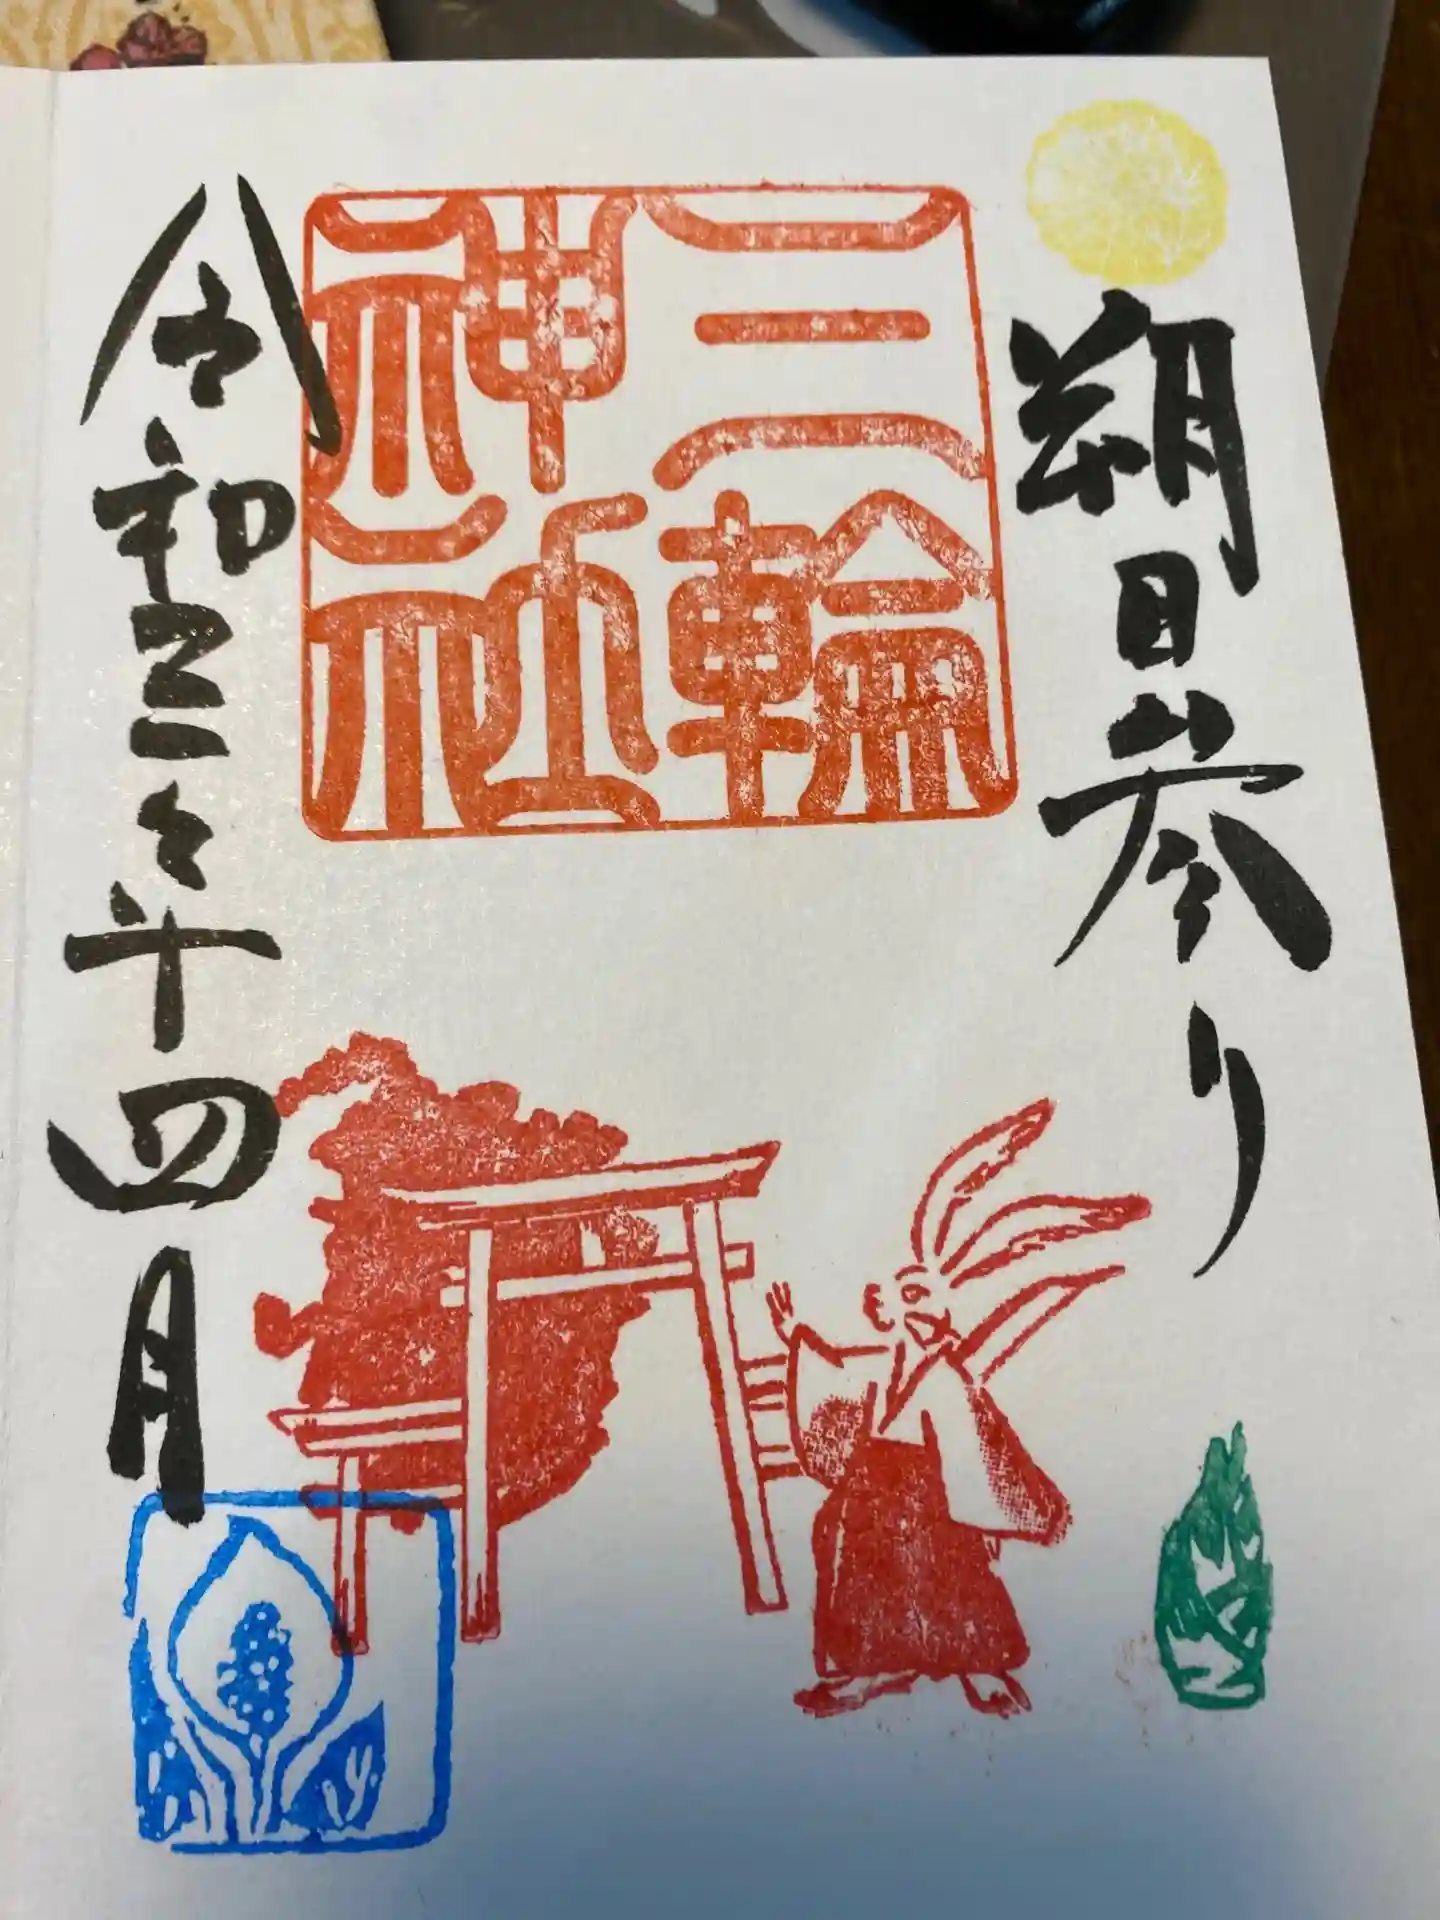 朔日参り
三輪
神社
令和三年四月